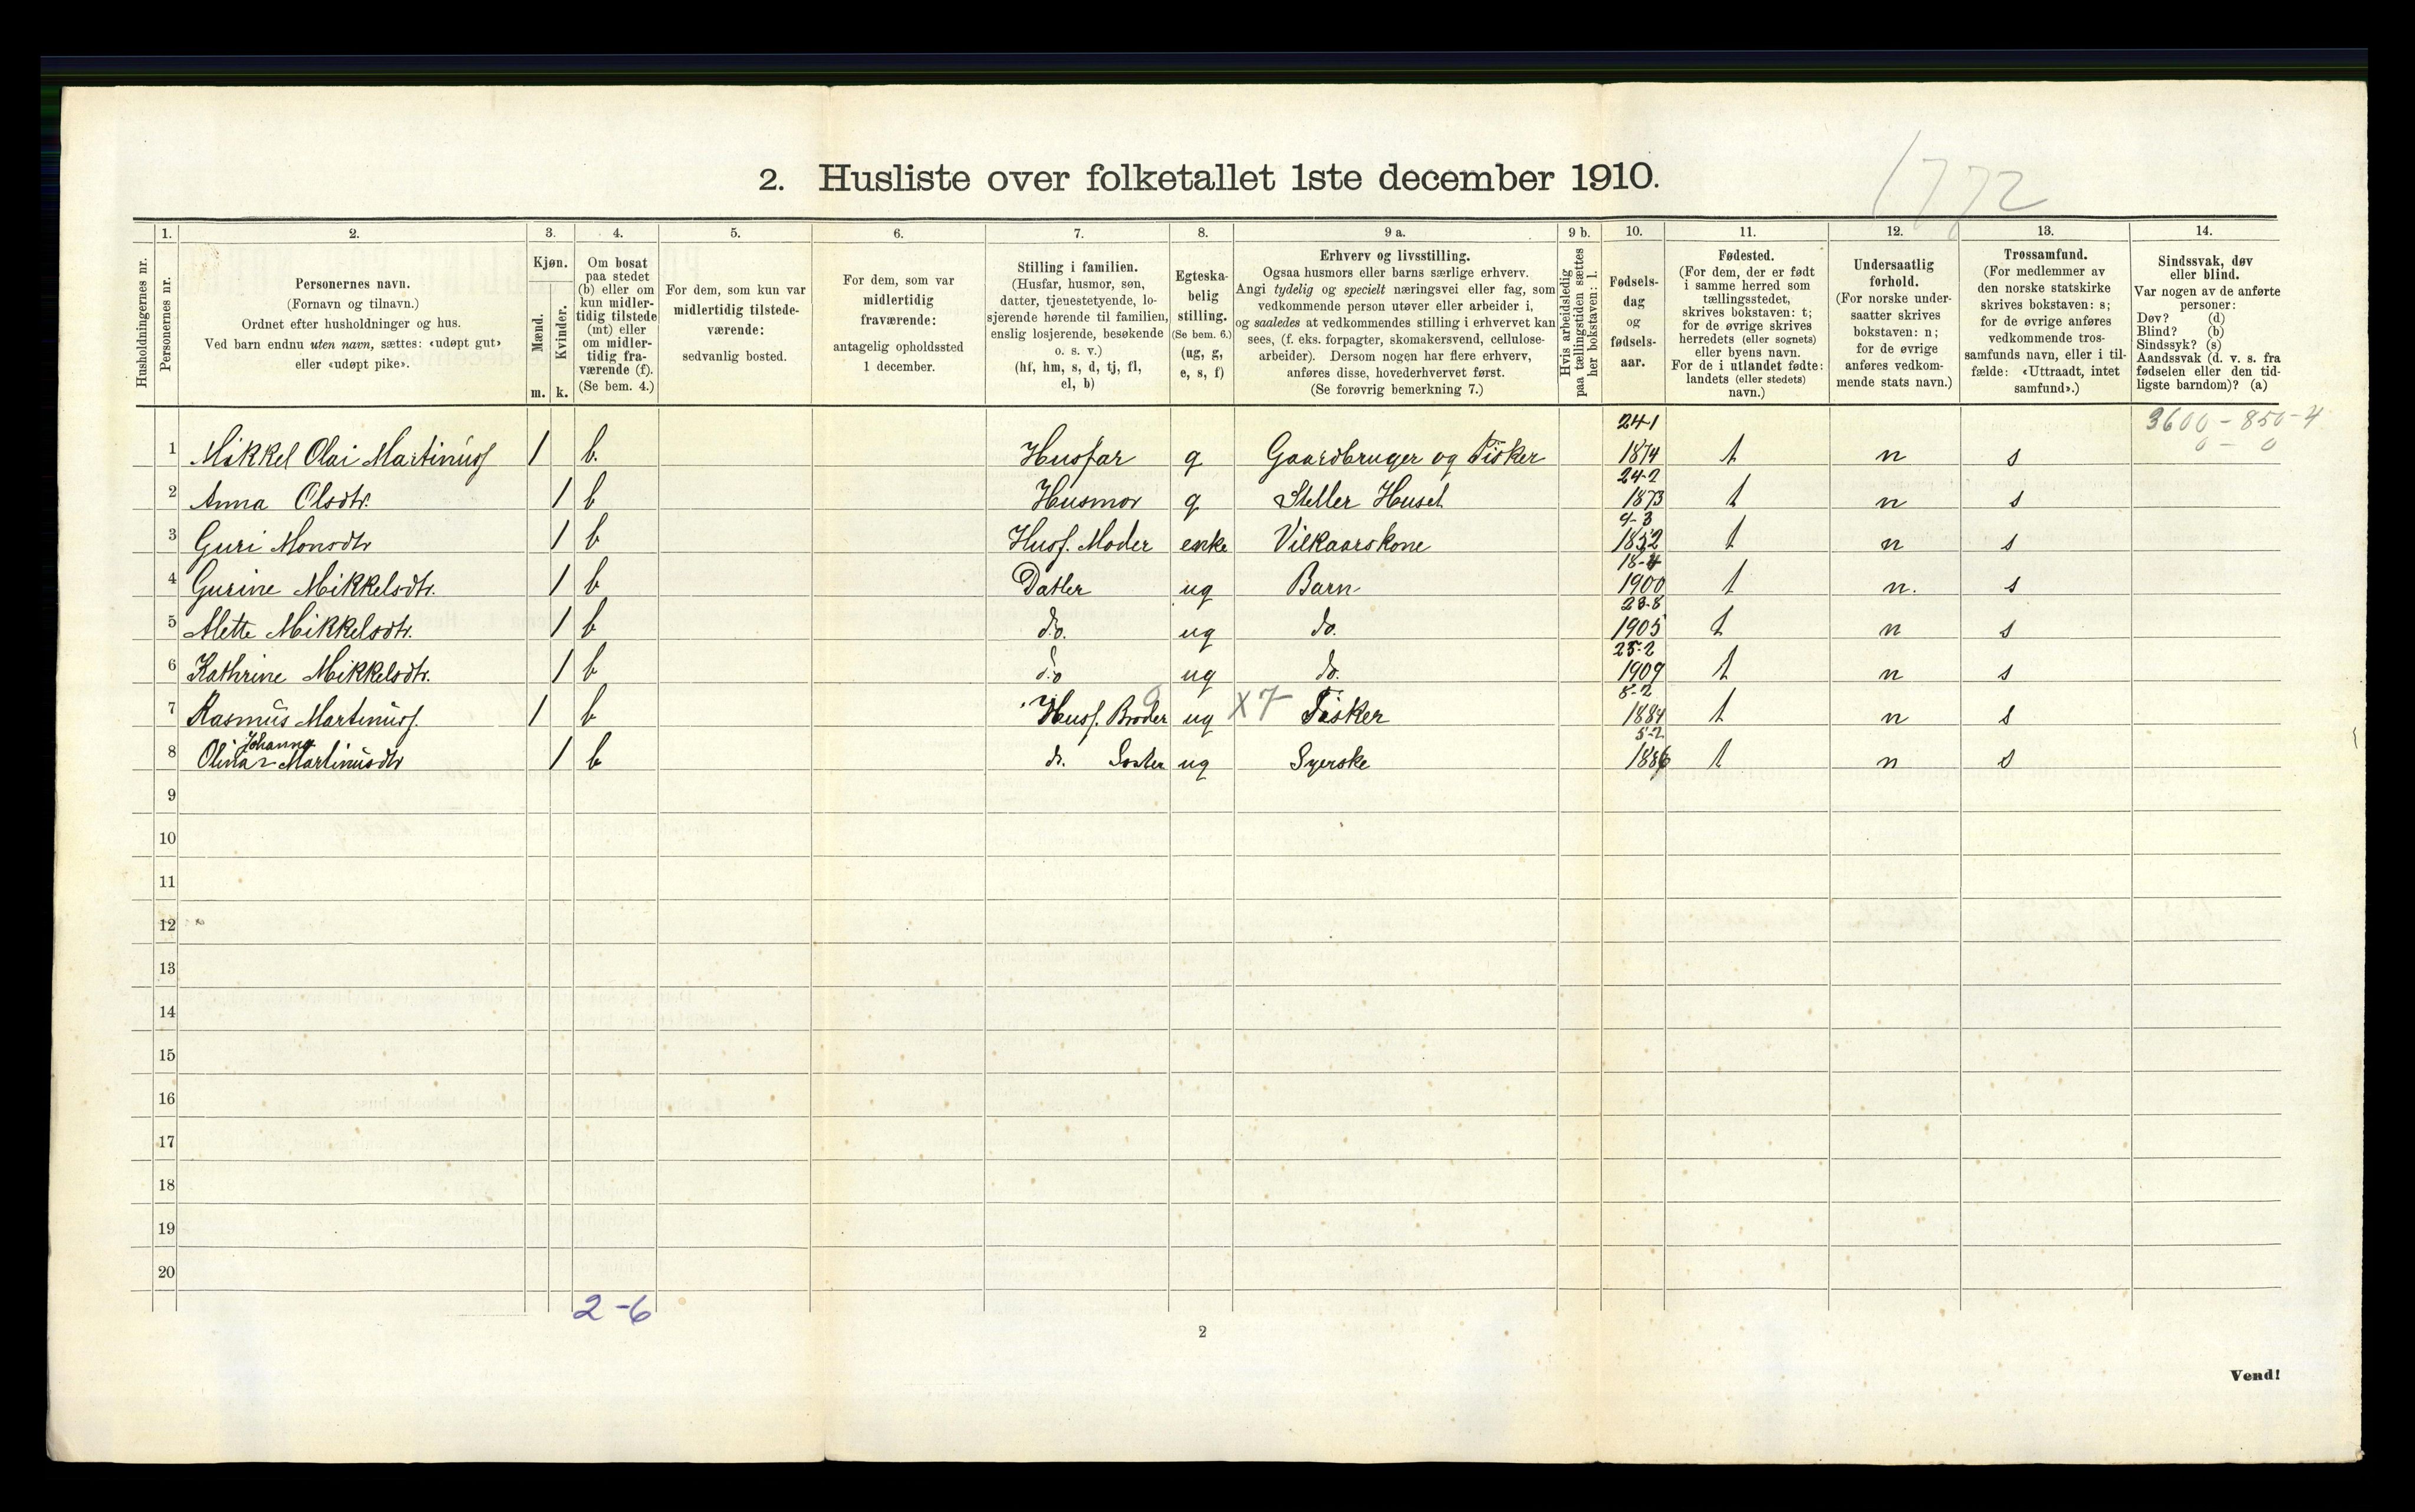 1772
2. Husliste over folketallet 1ste december 1910.
Husholdningernes nr.
1.
Personernes nr.
2.
Personernes navn.
(Fornavn og tilnavn.)
Ordnet efter husholdninger og hus.
Ved barn endnu uten navn, sættes: «udøpt gut»
eller «udøpt pike».
3.
Kjøn.
Mænd.
Kvinder.
m. k.
4.
Om bosat
paa stedet
(b) eller om
kun midler-
tidig tilstede
(mt) eller
om midler-
tidig fra-
værende (f).
(Se bem. 4.)
5.
For dem, som kun var
midlertidig tilstede-
værende:
sedvanlig bosted.
6.
For dem, som var
midlertidig
fraværende:
antagelig opholdssted
1 december.
7.
Stilling i familien.
(Husfar, husmor, søn,
datter, tjenestetyende, lo-
sjerende hørende til familien,
enslig losjerende, besøkende
o. s. v.)
(hf, hm, s, d, tj, fl,
el, b)
8.
Egteska-
belig
stilling.
(Se bem. 6.)
(ug, g,
e, s, f)
9 a.
Erhverv og livsstilling.
Ogsaa husmors eller barns særlige erhverv.
Angi tydelig og specielt næringsvei eller fag, som
vedkommende person utøver eller arbeider i,
og saaledes at vedkommendes stilling i erhvervet kan
sees, (f. eks. forpagter, skomakersvend, cellulose-
arbeider). Dersom nogen har flere erhverv,
anføres disse, hovederhvervet først.
(Se forøvrig bemerkning 7.)
9 b.
Hvis arbeidsledig
paa tællingstiden sættes
her bokstaven: l.
10.
Fødsels-
dag
og
fødsels-
aar.
11.
Fødested.
(For dem, der er født
i samme herred som
tællingsstedet,
skrives bokstaven: t;
for de øvrige skrives
herredets (eller sognets)
eller byens navn.
For de i utlandet fødte:
landets (eller stedets)
navn.)
12.
Undersaatlig
forhold.
(For norske under-
saatter skrives
bokstaven: n;
for de øvrige
anføres vedkom-
mende stats navn.)
13.
Trossamfund.
(For medlemmer av
den norske statskirke
skrives bokstaven: s;
for de øvrige anføres
vedkommende tros-
samfunds navn, eller i til-
fælde: «Uttraadt, intet
samfund».)
14.
Sindssvak, døv
eller blind.
Var nogen av de anførte
personer:
Døv? (d)
Blind? (b)
Sindssyk? (s)
Aandssvak (d. v. s. fra
fødselen eller den tid-
ligste barndom)? (a)
3600 - 850 - 4
0 - 0
24-1
1 Mikkel Olai Martinusf 1 b. Husfar g Gaardbruger og Fisker 1874 t n s
24-2
2 Anna Olsdtr. 1 b Husmor g Steller Huset 1873 t n s
9-3
3 Guri Monsdtr 1 b Husf. Moder enke Vilkaarskone 1852 t n s
18-4
4 Gurine Mikkelsdtr. 1 b Datter ug Barn 1900 t n. s
23-8
5 Mette Mikkelsdtr. 1 b do. ug do. 1905 t n s
25-2
6 Kathrine Mikkelsdtr. 1 b do ug do. 1909 t n s
8-2
7 Rasmus Martinusf. 1 b Husf. Broder ug X7 Fisker 1884 t n s
Johanna 5-2
8 Olina Martinusdtr 1 b do. Søster ug Syerske 1886 t n s
9
10
11
12
13
14
15
16
17
18
19
20
2-6
2
Vend!